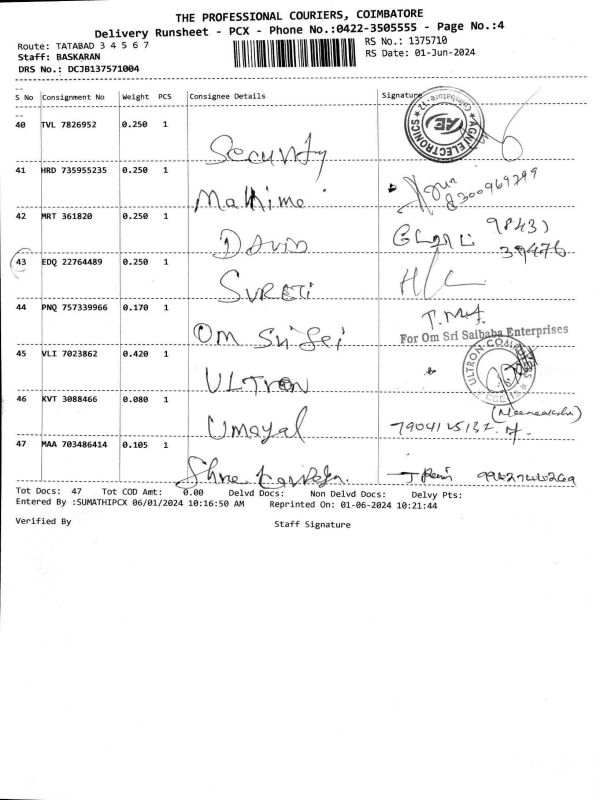 THE PROFESSIONAL COURIERS, COIMBATORE
Delivery Runsheet - PCX - Phone No.:0422-3505555 - Page No.:4
Route: TATABAD 3 4 5 6 7
RS No.: 1375710
Staff: BASKARAN
RS Date: 01-Jun-2024
DRS No.: DCJB137571004
S No Consignment No Weight PCS Consignee Details Signature
40 TVL 7826952 0.250 1 Security
AGN ELECTRONICS Coimbatore-12 AE
41 HRD 735955235 0.250 1
42 MRT 361820 0.250 1 David
43 EDQ 22764489 0.250 1 H/L
44 PNQ 757339966 0.170 1 Om Sri Sai
For Om Sri Saibaba Enterprises
45 VLI 7023862 0.420 1 ULTron
ULTRON COMPUTERS
46 KVT 3088466 0.080 1 Umayal
47 MAA 703486414 0.105 1 Shree
Tot Docs: 47 Tot COD Amt: 0.00 Delvd Docs: Non Delvd Docs: Delvy Pts:
Entered By :SUMATHIPCX 06/01/2024 10:16:50 AM Reprinted On: 01-06-2024 10:21:44
Verified By Staff Signature